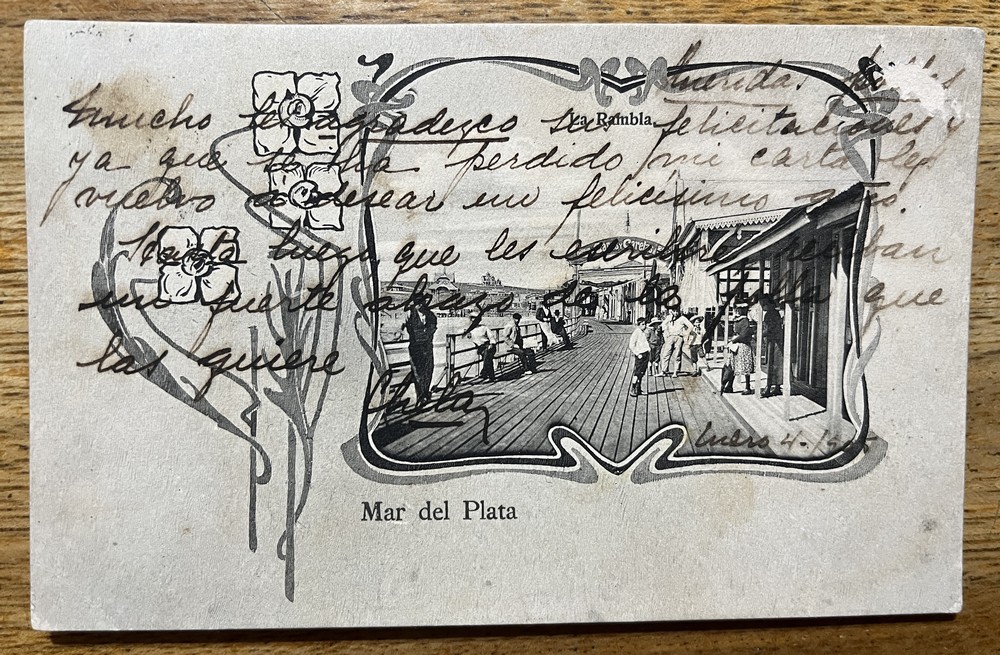 Queridas
La Rambla.
Mucho les agradezco sus felicitaciones y
ya que se ha perdido mi carta les
vuelvo a desear un felicísimo año.
Hasta luego que les escribiré reciban
un fuerte abrazo de la que
las quiere
Enero 4-1905
Mar del Plata